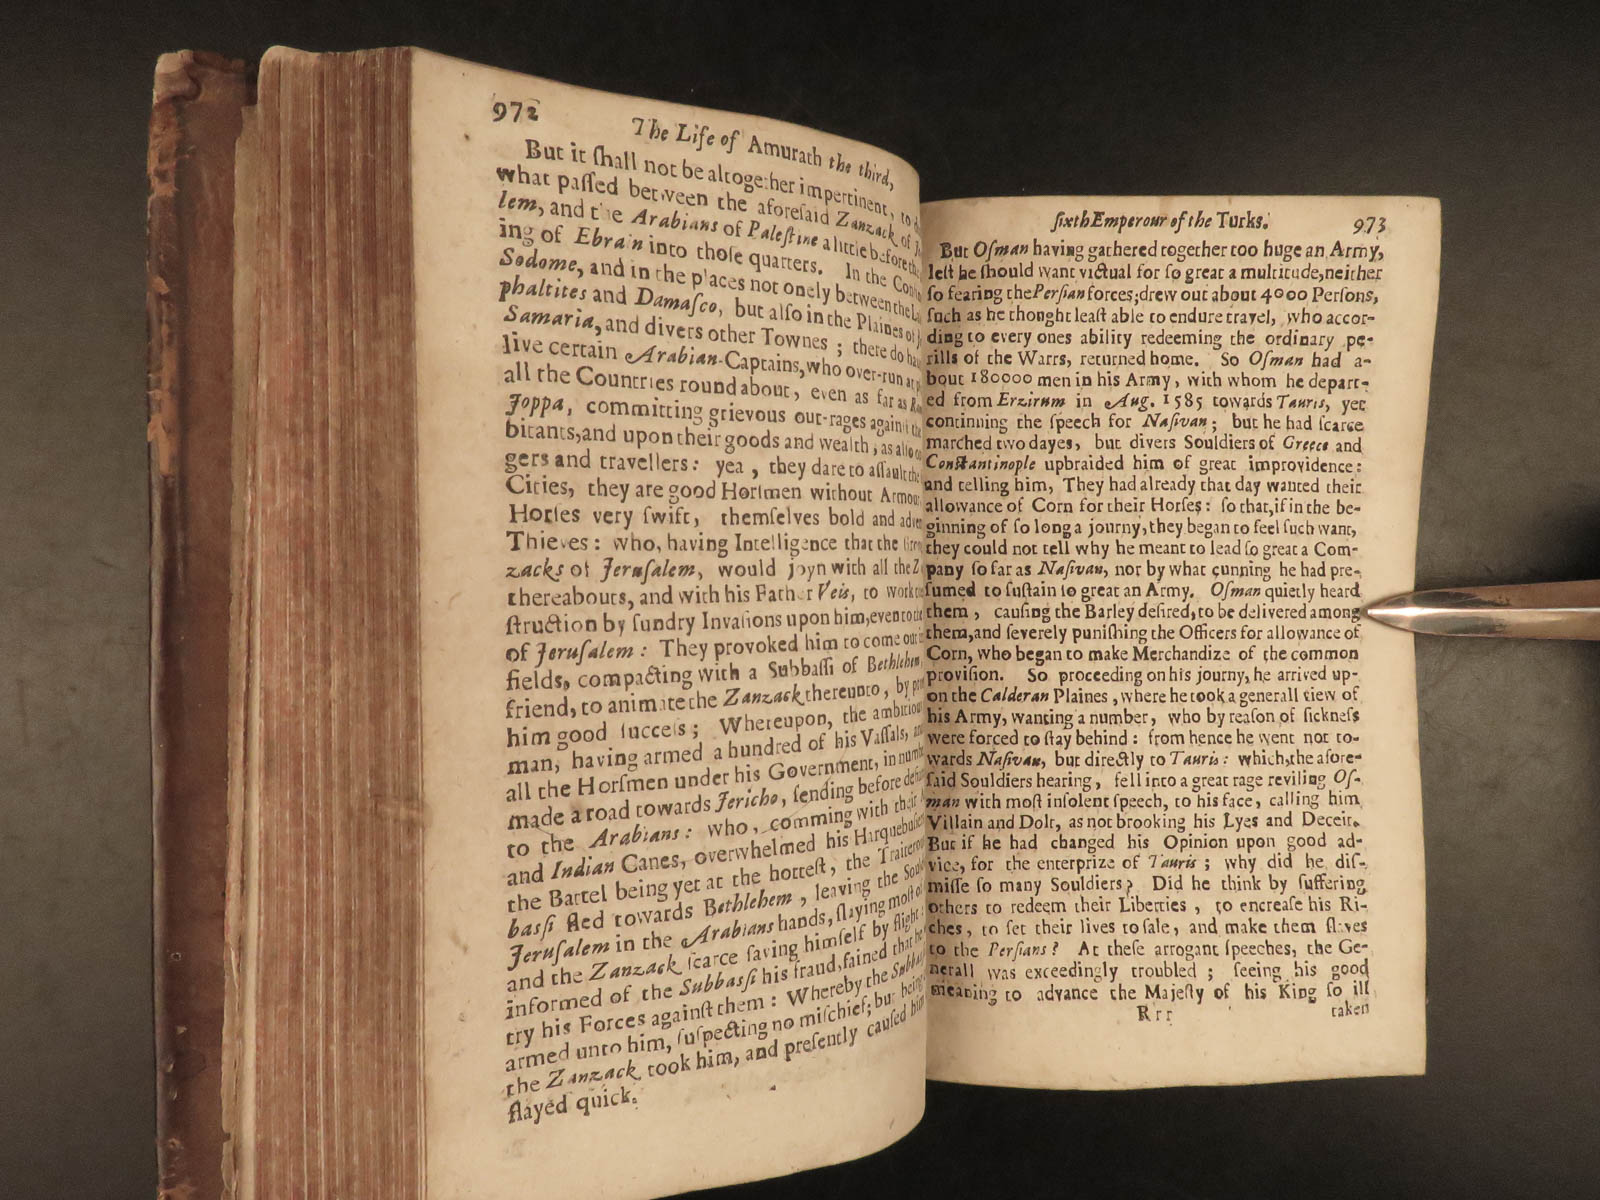 972
The Life of Amurath the third,
But it ſhall not be altogether impertinent, to
what paſſed between the aforeſaid Zanzack of
lem, and the Arabians of Paleſtine a little before the
ing of Ebrain into thoſe quarters. In the
Sodome, and in the places not onely between the
phaltites and Damaſco, but alſo in the Plaines of
Samaria, and divers other Townes ; there do
live certain Arabian-Captains, who over-run at
all the Countries round about, even as far as
Joppa, committing grievous out-rages againſt the
bitants, and upon their goods and wealth, as alſo
gers and travellers: yea, they dare to aſſault the
Cities, they are good Horſmen without Armour,
Horſes very ſwift, themſelves bold and
Thieves: who, having Intelligence that the
zacks of Jeruſalem, would joyn with all the
thereabouts, and with his Father Veis, to work
ſtruction by ſundry Invaſions upon him, even to the
of Jeruſalem: They provoked him to come out
fields, compacting with a Subbaſſi of Bethlehem,
friend, to animate the Zanzack thereunto, by
him good ſucceſs; Whereupon, the ambitious
man, having armed a hundred of his Vaſſals,
all the Horſmen under his Government, in
made a road towards Jericho, ſending before
to the Arabians: who, comming with their
and Indian Canes, overwhelmed his
the Battel being yet at the hotteſt, the
baſſi fled towards Bethlehem, leaving the
Jeruſalem in the Arabians hands, ſlaying moſt of
and the Zanzack ſcarce ſaving himſelf by flight:
informed of the Subbaſſi his fraud, fained that he
try his Forces againſt them: Whereby the
armed unto him, ſuſpecting no miſchief; but being
the Zanzack took him, and preſently cauſed him
flayed quick.
ſixth Emperour of the Turks.
973
But Oſman having gathered together too huge an Army,
leſt he ſhould want victual for ſo great a multitude, neither
ſo fearing the Perſian forces; drew out about 4000 Perſons,
ſuch as he thought leaſt able to endure travel, who accor-
ding to every ones ability redeeming the ordinary pe-
rills of the Warrs, returned home. So Oſman had a-
bout 180000 men in his Army, with whom he depart-
ed from Erzirum in Aug. 1585 towards Tauris, yet
continning the ſpeech for Naſivan; but he had ſcarce
marched two dayes, but divers Souldiers of Greece and
Conſtantinople upbraided him of great improvidence:
and telling him, They had already that day wanted their
allowance of Corn for their Horſes: ſo that, if in the be-
ginning of ſo long a journy, they began to feel ſuch want,
they could not tell why he meant to lead ſo great a Com-
pany ſo far as Naſivan, nor by what cunning he had pre-
ſumed to ſuſtain ſo great an Army. Oſman quietly heard
them, cauſing the Barley deſired, to be delivered among
them, and ſeverely puniſhing the Officers for allowance of
Corn, who began to make Merchandize of the common
proviſion. So proceeding on his journy, he arrived up-
on the Calderan Plaines, where he took a generall view of
his Army, wanting a number, who by reaſon of ſickneſs
were forced to ſtay behind: from hence he went not to-
wards Naſivan, but directly to Tauris: which, the afore-
ſaid Souldiers hearing, fell into a great rage reviling Oſ-
man with moſt inſolent ſpeech, to his face, calling him
Villain and Dolt, as not brooking his Lyes and Deceit.
But if he had changed his Opinion upon good ad-
vice, for the enterprize of Tauris; why did he diſ-
miſſe ſo many Souldiers? Did he think by ſuffering
others to redeem their Liberties, to encreaſe his Ri-
ches, to ſet their lives to ſale, and make them ſlaves
to the Perſians? At theſe arrogant ſpeeches, the Ge-
nerall was exceedingly troubled; ſeeing his good
meaning to advance the Majeſty of his King ſo ill
Rrr
taken